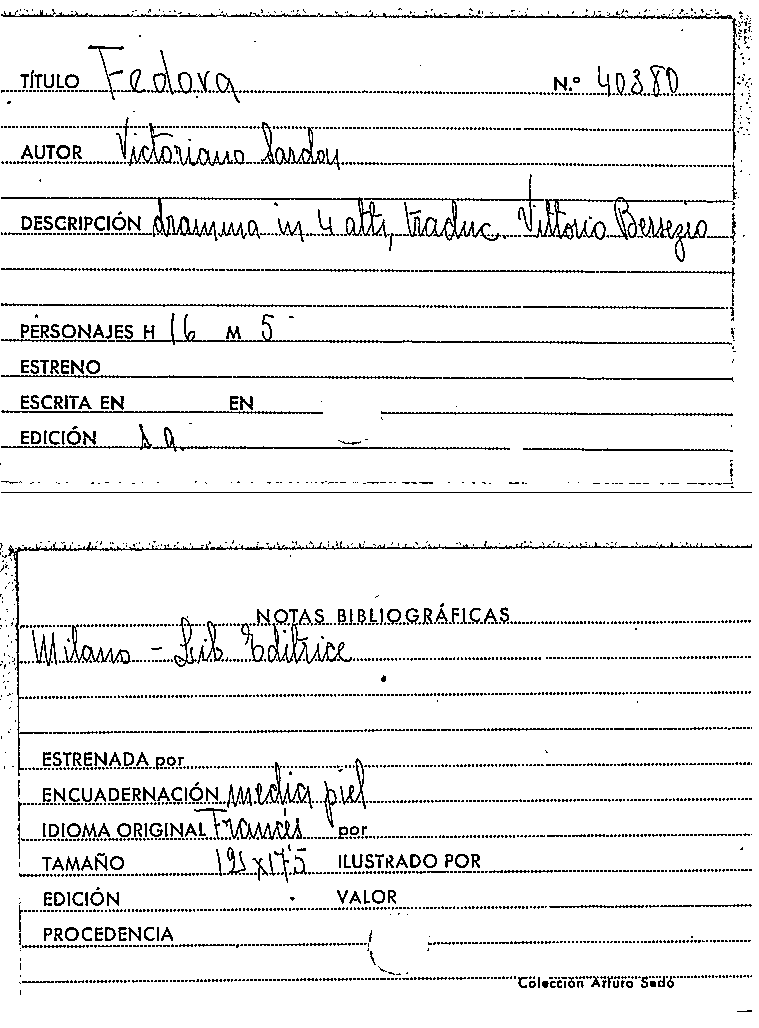 TÍTULO Fedora N.º 40380
AUTOR Victoriano Sardou
DESCRIPCIÓN dramma in 4 atti, traduc. Vittorio Bersezio
PERSONAJES H 16 M 5
ESTRENO
ESCRITA EN EN
EDICIÓN s.a.
NOTAS BIBLIOGRÁFICAS
Milano - Lib Editrice
ESTRENADA por
ENCUADERNACIÓN media piel
IDIOMA ORIGINAL Francés por
TAMAÑO ILUSTRADO POR
EDICIÓN VALOR
PROCEDENCIA
Colección Arturo Sedó